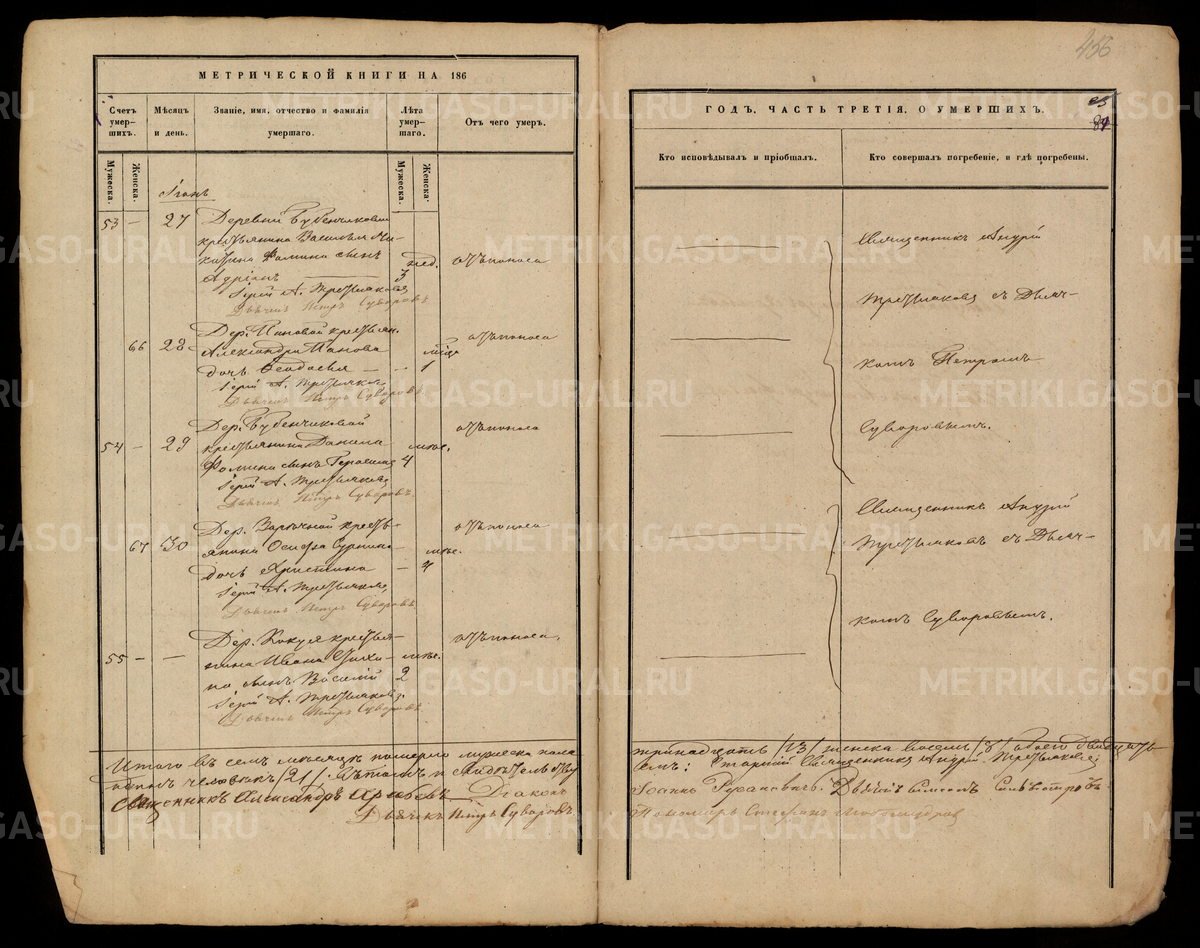 456
МЕТРИЧЕСКОЙ КНИГИ НА 186
Счетъ умер- шихъ.
Мѣсяцъ и день.
Званіе, имя, отчество и фамилія умершаго.
Лѣта умер- шаго.
Отъ чего умеръ.
Мужеска.
Женска.
Мужеска.
Женска.
Іюнь
53 — 27 Деревни Бубенчиковой
крестьянина Василья Ни-
китина Фомина сынъ нед. отъ поноса
Адріанъ 3
Іерей А. Третьяковъ
Дьячекъ Петръ Суворовъ
66 28 Дер. Пановой крестьян.
Александра Панова отъ поноса
дочь Ѳеодосія — 1
Іерей А. Третьяковъ
Дьячекъ Петръ Суворовъ
54 — 29 Дер. Бубенчиковой отъ поноса
крестьянина Данила мѣс.
Фомина сынъ Герасимъ 4
Іерей А. Третьяковъ
Дьячекъ Петръ Суворовъ
67 30 Дер. Заречной кресть- отъ поноса
янина Осипа мѣс.
дочь Христина — 4
Іерей А. Третьяковъ
Дьячекъ Петръ Суворовъ
55 — — Дер. Кокуя крестья- отъ поноса,
нина Ивана мѣс.
на сынъ Василій 2
Іерей А. Третьяковъ
Дьячекъ Петръ Суворовъ
Итого въ семъ мѣсяцѣ померло мужеска пола
человѣкъ /21/
Священникъ Александръ Діаконъ
Дьячекъ Петръ Суворовъ
ГОДЪ, ЧАСТЬ ТРЕТІЯ, О УМЕРШИХЪ.
84
Кто исповѣдывалъ и пріобщалъ.
Кто совершалъ погребеніе, и гдѣ погребены.
Священникъ Андрей
Третьяковъ съ Дьяч-
комъ Петромъ
Суворовымъ.
Священникъ Андрей
Третьяковъ съ Дьяч-
комъ Суворовымъ.
тринадцать /13/ женска восемь /8/ обоего двадцать
Священникъ Андрей Третьяковъ
Іоаннъ
Пономарь Стефанъ
METRIKI.GASO-URAL.RU